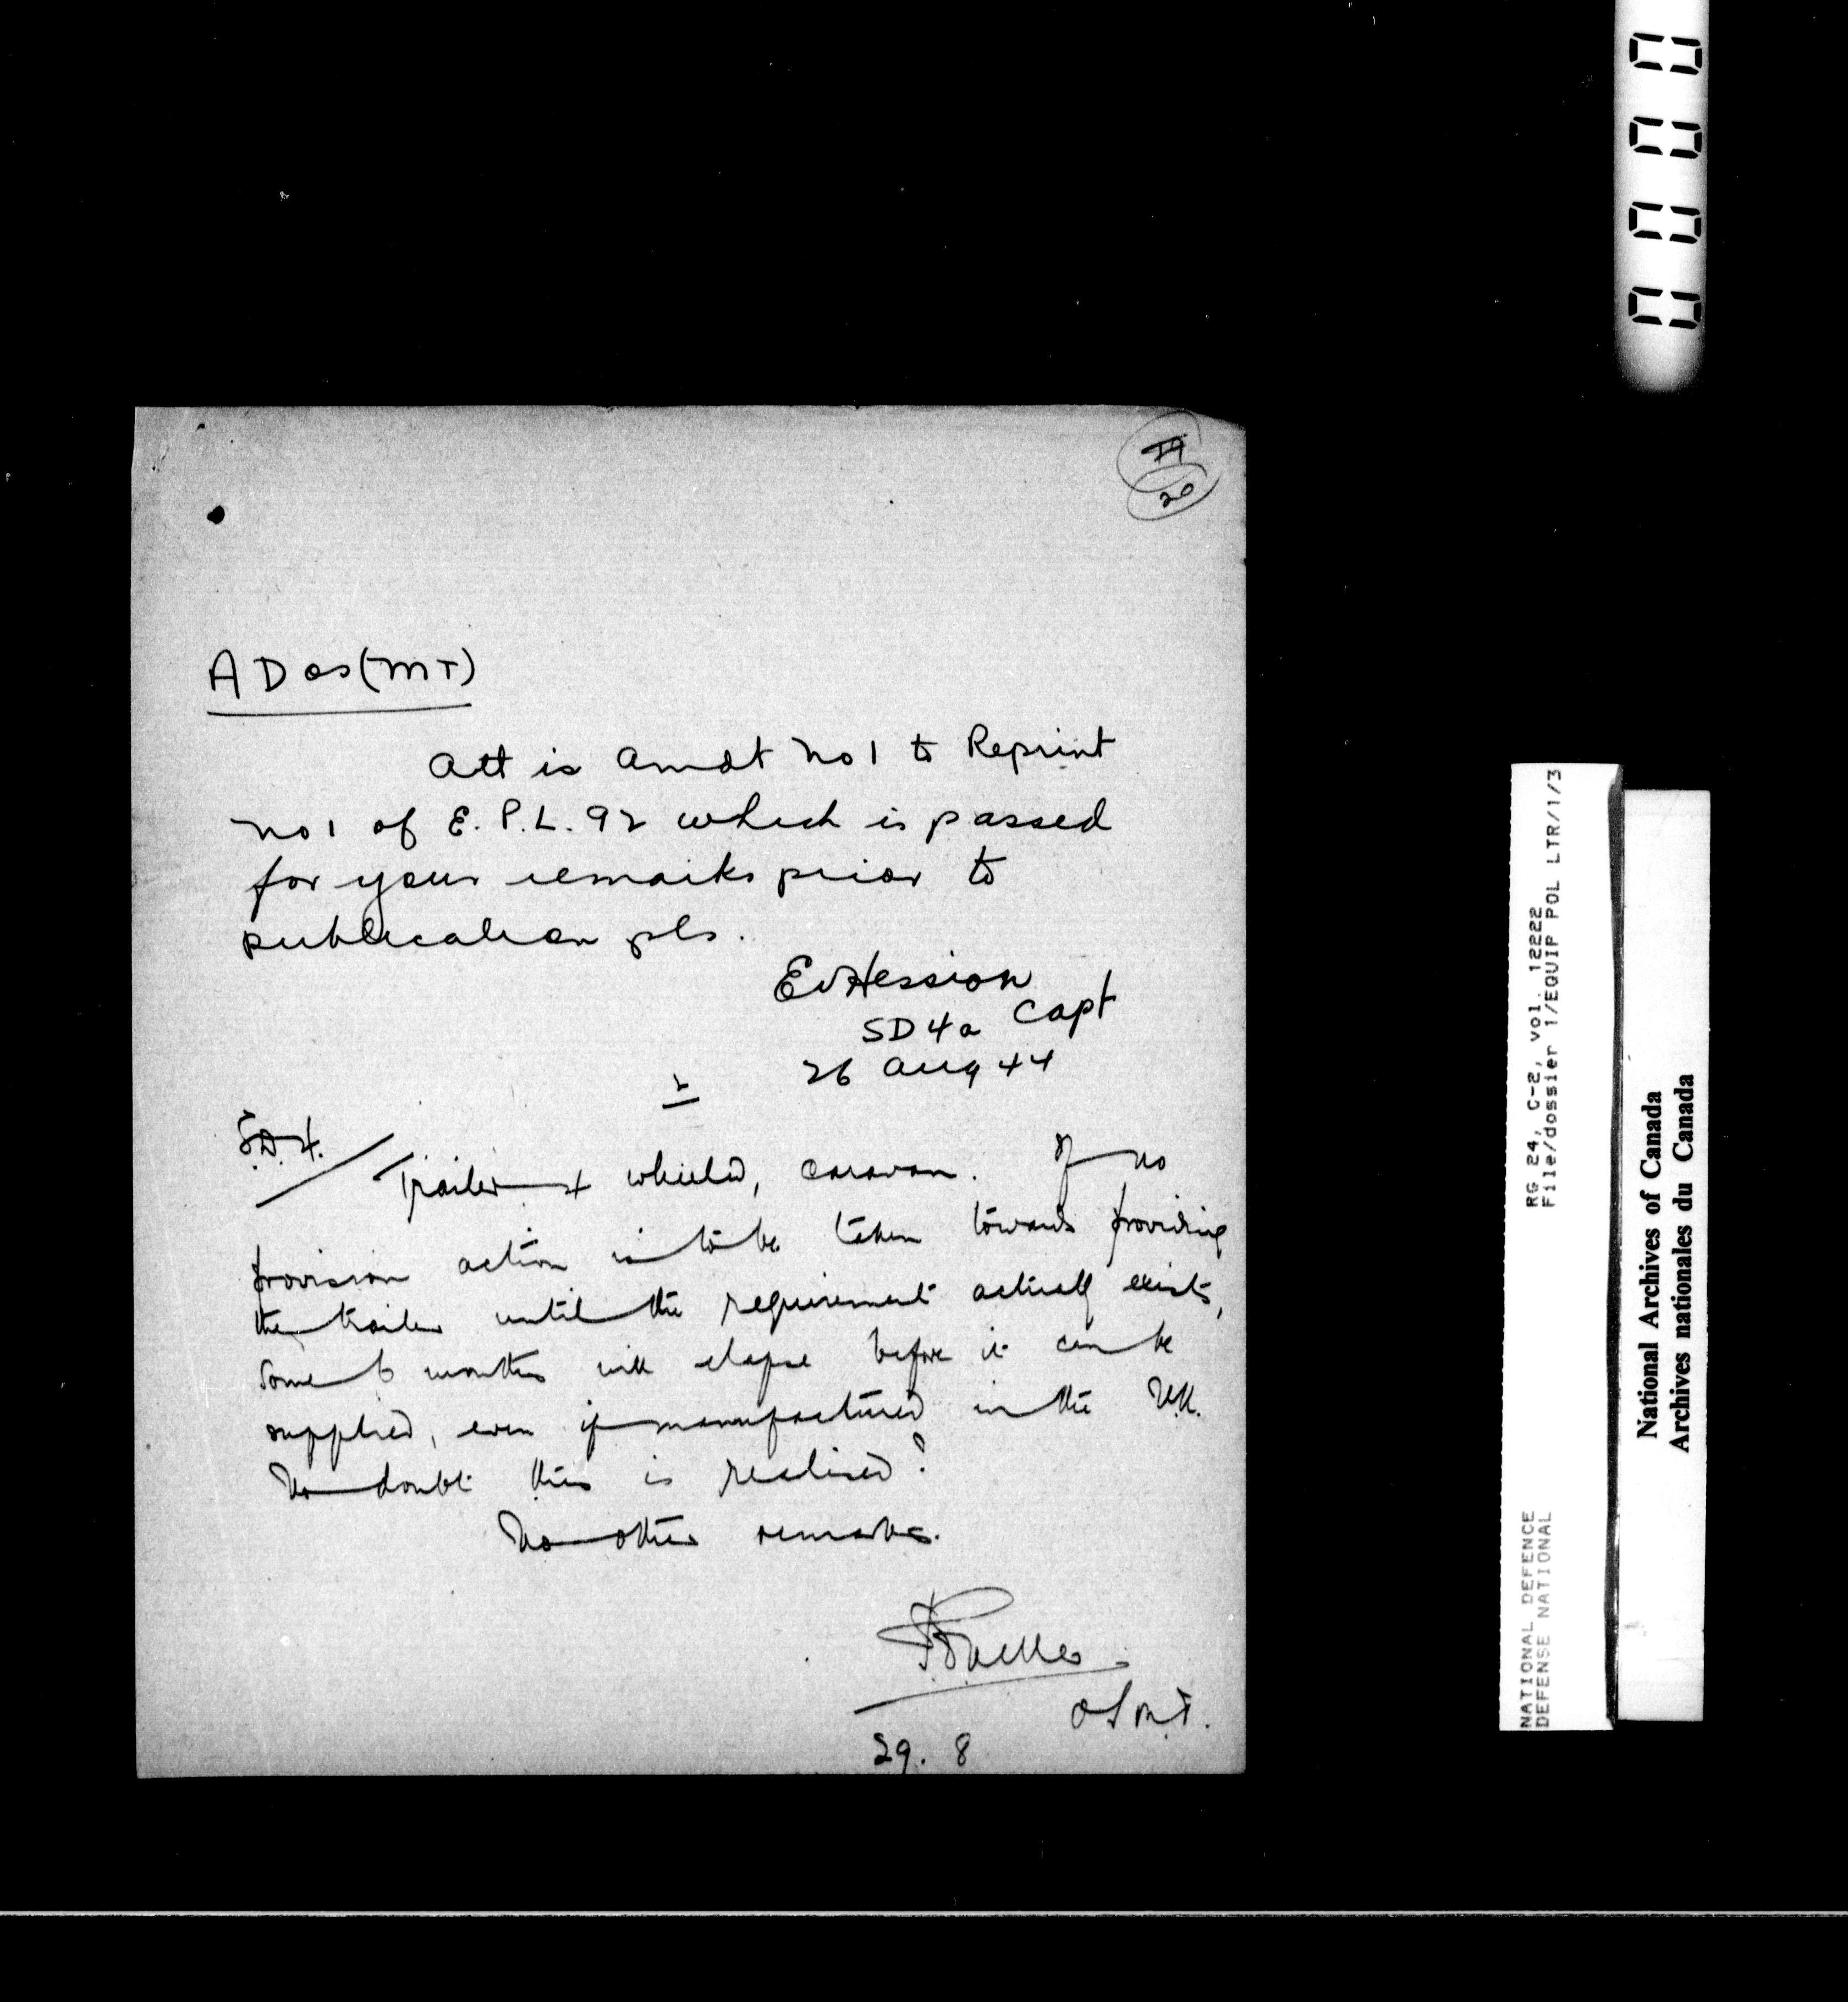 20
A D os (MT)
Att is Amdt No 1 to Reprint
No 1 of E.P.L. 92 which is passed
for your remarks prior to
publication pls.
Hession
Capt
SD 4 a
26 Aug 44
2
S.D.4.
Trailer 4 wheeled, caravan. If no
provision action is to be taken towards providing
the trailer until the requirement actually exists,
some 6 months will elapse before it can be
supplied, even if manufactured in the U.K.
No doubt this is realised?
No other remarks.
OS M.T.
29. 8
0000
RG 24, C-2, vol. 12222
File/dossier 1/EQUIP POL LTR/1/3
NATIONAL DEFENCE
DEFENSE NATIONAL
National Archives of Canada
Archives nationales du Canada